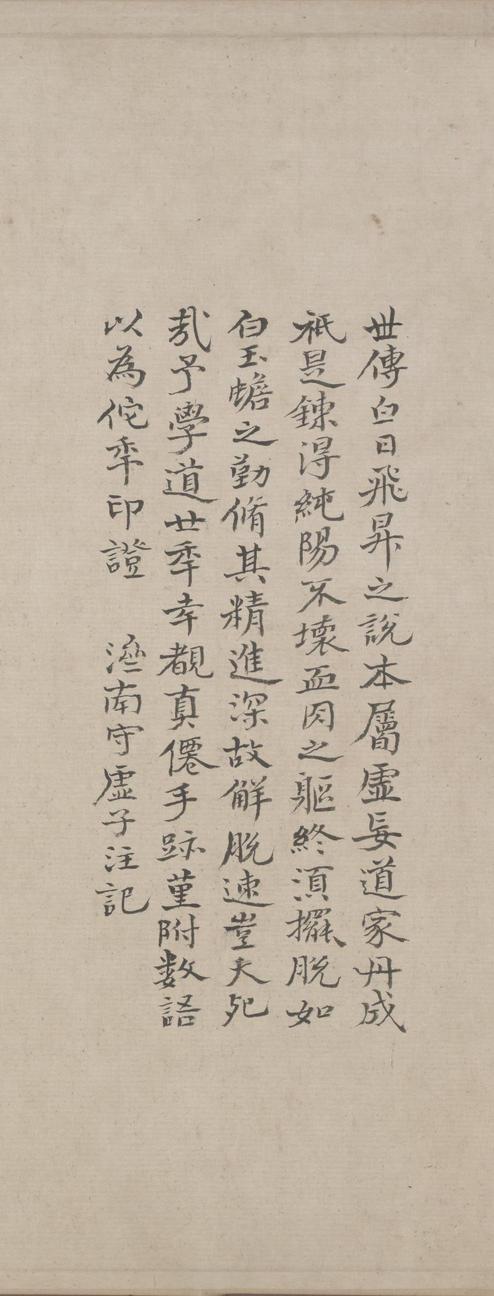 世傳白日飛昇之說本屬虛妄道家丹成
祇是鍊得純陽不壞血肉之軀終須擺脫如
白玉蟾之勤脩其精進深故解脫速豈夭死
哉予學道廿年幸覩真僊手跡堇附數語
以為佗年印證 濟南守虛子注記